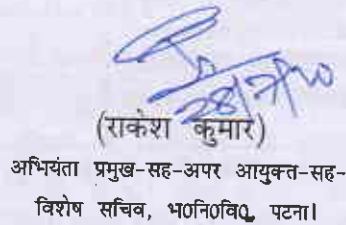 28/7/20
(राकेश कुमार)
अभियंता प्रमुख-सह-अपर आयुक्त-सह-
विशेष सचिव, भ0नि0वि0, पटना।